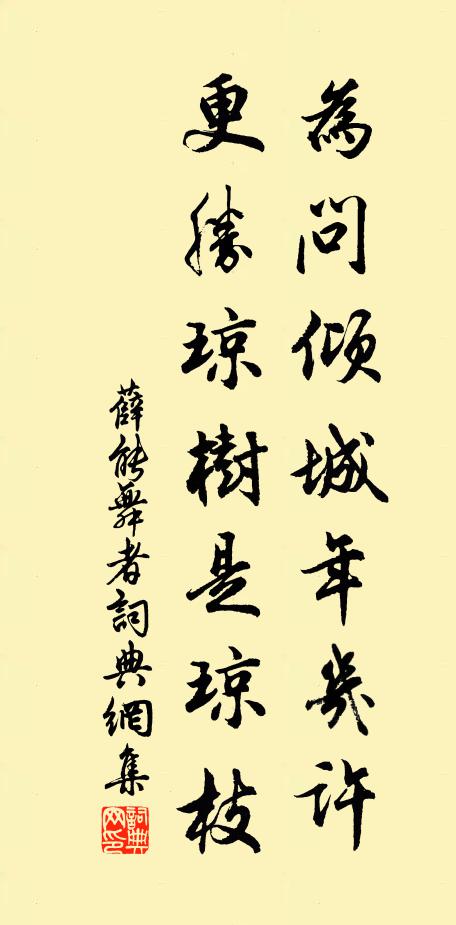 為問傾城年幾許
更勝琼樹是琼枝
薛能舞者詞典網集
詞典网印